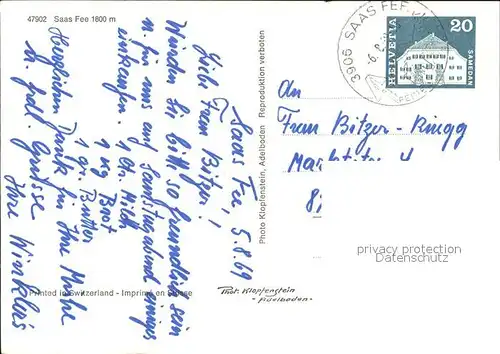 47902 Saas Fee 1800 m
Saas Fee, 5.8.69
Liebe Frau Bitzer!
Würden Sie bitte so freundlich sein
u. für uns auf Samstagabend einiges
einkaufen. 1 Ltr. Milch
1 kg Brot
1 gr. Butter
Herzlichen Dank für Ihre Mühe
u. frdl. Grüsse
Ihre Winklers
Printed in Switzerland - Imprimé en Suisse
Photo Klopfenstein, Adelboden Reproduktion verboten
Phot. Klopfenstein
- Adelboden -
3906 SAAS FEE
6.8.
HELVETIA
20
SAMEDAN
An
Frau Bitzer-Ringg
8
privacy protection
Datenschutz